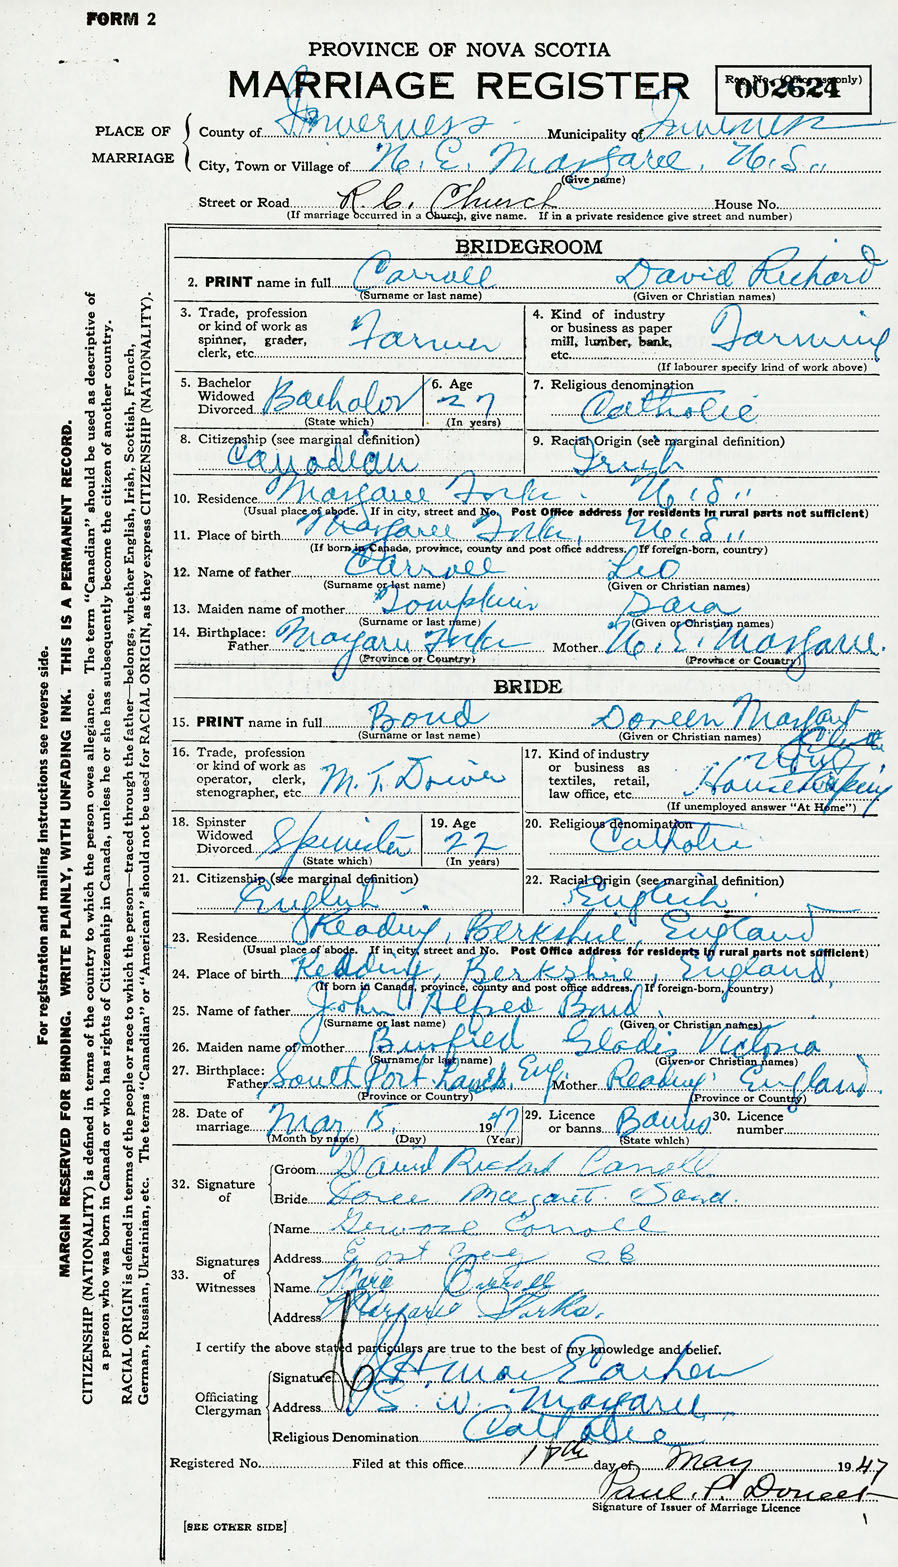 FORM 2
PROVINCE OF NOVA SCOTIA
MARRIAGE REGISTER
Reg. No. (Office use only)
002624
PLACE OF MARRIAGE
County of Inverness Municipality of Inverness
City, Town or Village of N. E. Margaree, N.S.
(Give name)
Street or Road R.C. Church House No.
(If marriage occurred in a Church, give name. If in a private residence give street and number)
BRIDEGROOM
2. PRINT name in full Carroll David Richard
(Surname or last name) (Given or Christian names)
3. Trade, profession or kind of work as spinner, grader, clerk, etc. Farmer
4. Kind of industry or business as paper mill, lumber, bank, etc. Farming
(If labourer specify kind of work above)
5. Bachelor Widowed Divorced Bachelor
(State which)
6. Age 27
(In years)
7. Religious denomination Catholic
8. Citizenship (see marginal definition) Canadian
9. Racial Origin (see marginal definition) Irish
10. Residence Margaree Forks N.S.
(Usual place of abode. If in city, street and No. Post Office address for residents in rural parts not sufficient)
11. Place of birth Margaree Forks, N.S.
(If born in Canada, province, county and post office address. If foreign-born, country)
12. Name of father Carroll Leo
(Surname or last name) (Given or Christian names)
13. Maiden name of mother Tompkins Sara
(Surname or last name) (Given or Christian names)
14. Birthplace: Father Margaree Forks Mother N. E. Margaree.
(Province or Country) (Province or Country)
BRIDE
15. PRINT name in full Bond Doreen Margaret
(Surname or last name) (Given or Christian names)
16. Trade, profession or kind of work as operator, clerk, stenographer, etc. M. T. Driver
17. Kind of industry or business as textiles, retail, law office, etc. Housekeeping
(If unemployed answer "At Home")
18. Spinster Widowed Divorced Spinster
(State which)
19. Age 22
(In years)
20. Religious denomination Catholic
21. Citizenship (see marginal definition) English
22. Racial Origin (see marginal definition) English
23. Residence Reading, Berkshire, England
(Usual place of abode. If in city, street and No. Post Office address for residents in rural parts not sufficient)
24. Place of birth Reading, Berkshire, England,
(If born in Canada, province, county and post office address. If foreign-born, country)
25. Name of father John Alfred Bond.
(Surname or last name) (Given or Christian names)
26. Maiden name of mother Busfield Gladis Victoria
(Surname or last name) (Given or Christian names)
27. Birthplace: Father South Port Eng. Mother Reading England
(Province or Country) (Province or Country)
28. Date of marriage May 15, 1947
(Month by name) (Day) (Year)
29. Licence or banns Banns
(State which)
30. Licence number
32. Signature of
Groom David Richard Carroll
Bride Doreen Margaret Bond.
33. Signatures of Witnesses
Name Carroll
Address East C B
Name Carroll
Address Margaree Forks.
I certify the above stated particulars are true to the best of my knowledge and belief.
Officiating Clergyman
Signature
Address S. W. Margaree
Religious Denomination Catholic
Registered No. Filed at this office day of May 1947
Paul P. Doucet
Signature of Issuer of Marriage Licence
[SEE OTHER SIDE]
For registration and mailing instructions see reverse side.
MARGIN RESERVED FOR BINDING. WRITE PLAINLY, WITH UNFADING INK. THIS IS A PERMANENT RECORD.
CITIZENSHIP (NATIONALITY) is defined in terms of the country to which the person owes allegiance. The term "Canadian" should be used as descriptive of
a person who was born in Canada or who has rights of Citizenship in Canada, unless he or she has subsequently become the citizen of another country.
RACIAL ORIGIN is defined in terms of the people or race to which the person—traced through the father—belongs, whether English, Irish, Scottish, French,
German, Russian, Ukrainian, etc. The terms "Canadian" or "American" should not be used for RACIAL ORIGIN, as they express CITIZENSHIP (NATIONALITY).